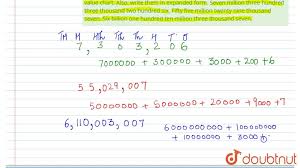 value chart. Also, write them in expanded form. Seven million three hundred
three thousand two hundred six. Fifty five million twenty nine thousand
seven. Six billion one hundred ten million three thousand seven.
TM M Hth Tth Th H T O
7, 3 0 3, 2 0 6
7000000 + 300000 + 3000 + 200 + 6
55,029,007
50000000 + 5000000 + 20000 + 9000 + 7
6,110,003,007
6000000000 + 100000000
+ 10000000 + 3000
doubtnut